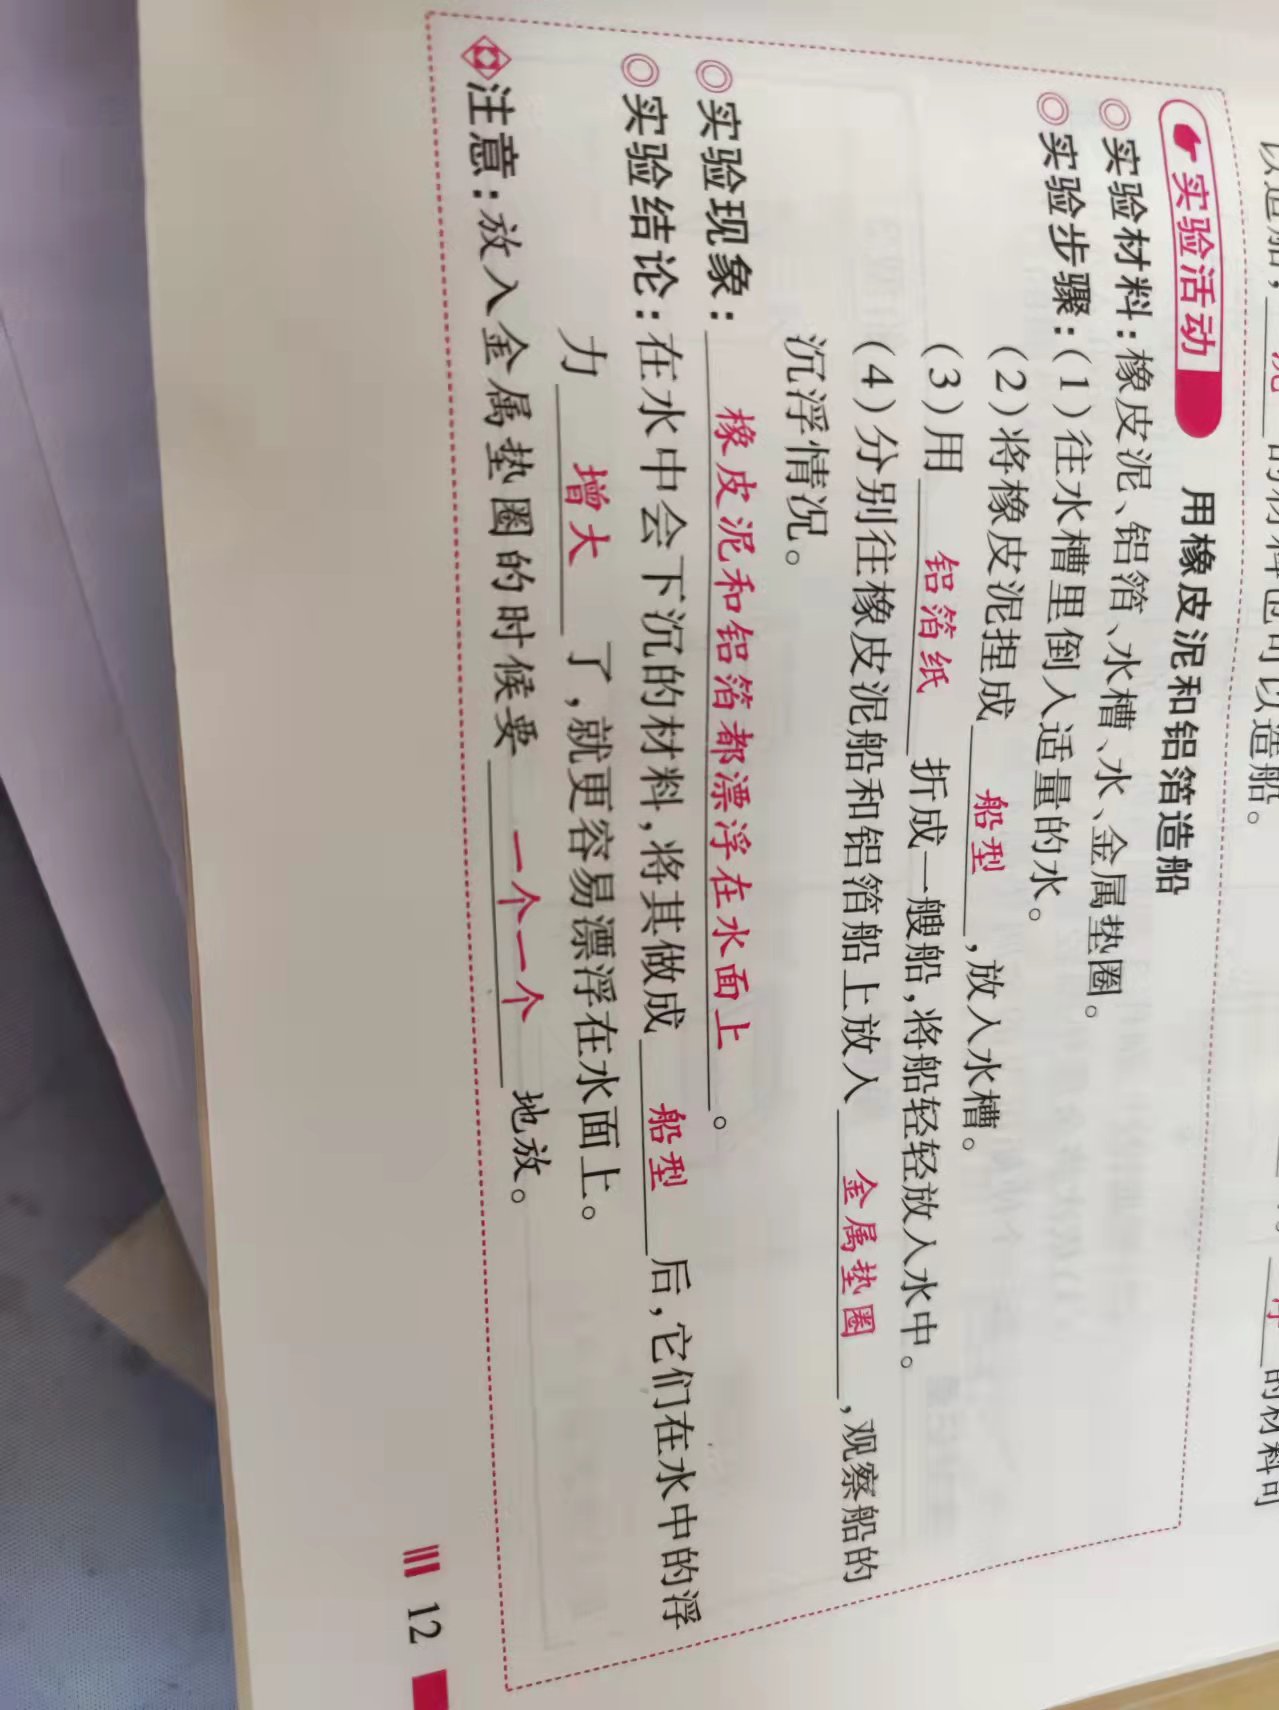 的材料也可以造船。
的材料可
实验活动 用橡皮泥和铝箔造船
◎实验材料：橡皮泥、铝箔、水槽、水、金属垫圈。
◎实验步骤：（1）往水槽里倒入适量的水。
（2）将橡皮泥捏成 船型 ，放入水槽。
（3）用 铝箔纸 折成一艘船，将船轻轻放入水中。
（4）分别往橡皮泥船和铝箔船上放入 金属垫圈 ，观察船的
沉浮情况。
◎实验现象： 橡皮泥和铝箔都漂浮在水面上 。
◎实验结论：在水中会下沉的材料，将其做成 船型 后，它们在水中的浮
力 增大 了，就更容易漂浮在水面上。
注意：放入金属垫圈的时候要 一个一个 地放。
12